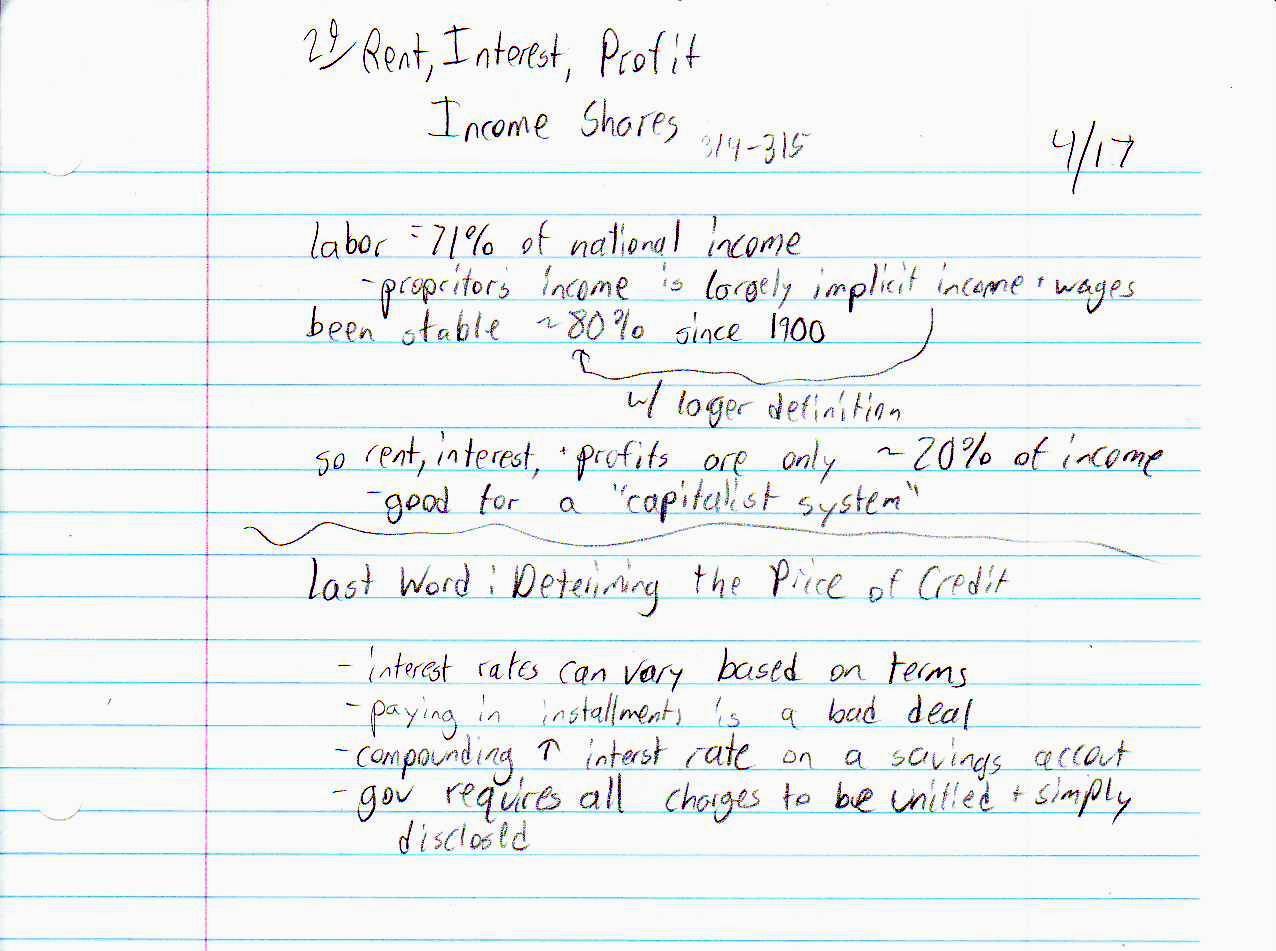 29 Rent, Interest, Profit
Income Shares 314-315
4/17
labor = 71% of national income
-propritor's income is largely implicit income + wages
been stable ~80% since 1900
w/ larger definition
so rent, interest, + profits are only ~20% of income
-good for a "capitalist system"
Last Word: Deteriming the Price of Credit
- interest rates can vary based on terms
- paying in installments is a bad deal
- compounding ↑ interst rate on a savings accout
- gov requires all charges to be unified + simply
disclosed